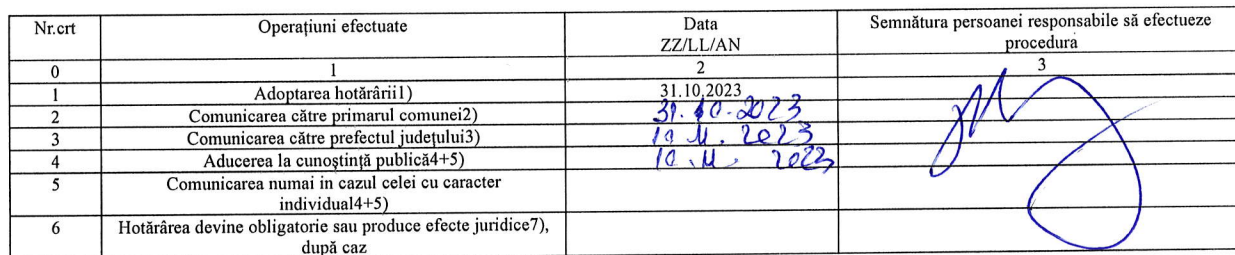 Nr.crt Operațiuni efectuate Data ZZ/LL/AN Semnătura persoanei responsabile să efectueze procedura
0 1 2 3
1 Adoptarea hotărârii1) 31.10.2023
2 Comunicarea către primarul comunei2) 31.10.2023
3 Comunicarea către prefectul județului3) 10.11.2023
4 Aducerea la cunoștință publică4+5) 10.11.2023
5 Comunicarea numai in cazul celei cu caracter individual4+5)
6 Hotărârea devine obligatorie sau produce efecte juridice7), după caz